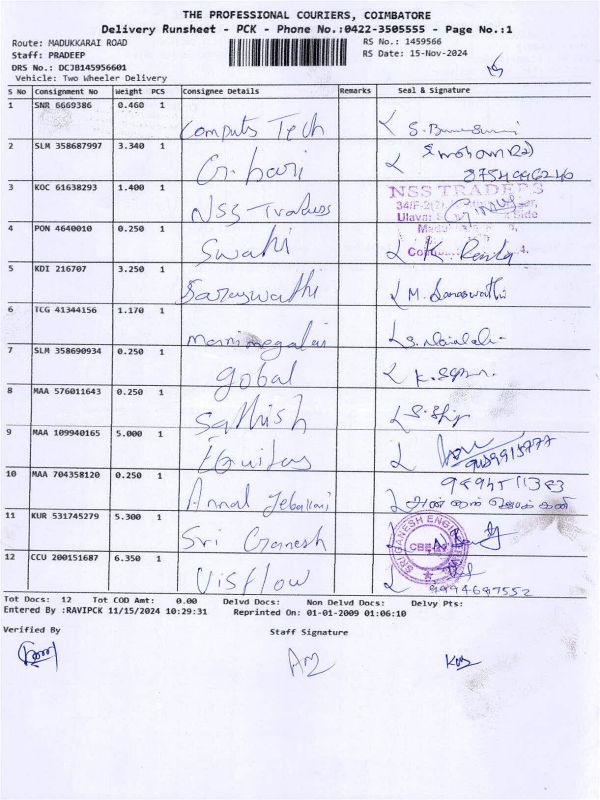 THE PROFESSIONAL COURIERS, COIMBATORE
Delivery Runsheet - PCK - Phone No.:0422-3505555 - Page No.:1
Route: MADUKKARAI ROAD RS No.: 1459566
Staff: PRADEEP RS Date: 15-Nov-2024
DRS No.: DCJB145956601
Vehicle: Two Wheeler Delivery
S No Consignment No Weight PCS Consignee Details Remarks Seal & Signature
1 SNR 6669386 0.460 1
Computs Tech
2 SLM 358687997 3.340 1
G. hari
3 KOC 61638293 1.400 1 NSS TRADERS
NSS Traders
4 PON 4640010 0.250 1
Swathi
5 KDI 216707 3.250 1
Saraswathi M. Saraswathi
6 TCG 41344156 1.170 1
manimegalai
7 SLM 358690934 0.250 1
gobal
8 MAA 576011643 0.250 1
Sathish
9 MAA 109940165 5.000 1
Equitas
10 MAA 704358120 0.250 1
Annal Jebakani
11 KUR 531745279 5.300 1 SRI GANESH
Sri Ganesh
12 CCU 200151687 6.350 1
Visflow 9994687552
Tot Docs: 12 Tot COD Amt: 0.00 Delvd Docs: Non Delvd Docs: Delvy Pts:
Entered By :RAVIPCK 11/15/2024 10:29:31 Reprinted On: 01-01-2009 01:06:10
Verified By Staff Signature